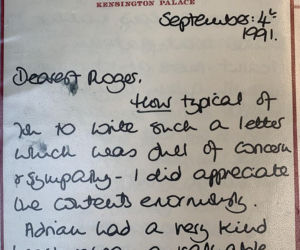 KENSINGTON PALACE
September: 4th
1991.
Dearest Roger,
How typical of
you to write such a letter
which was full of concern
& sympathy - I did appreciate
the contents enormously.
Adrian had a very kind